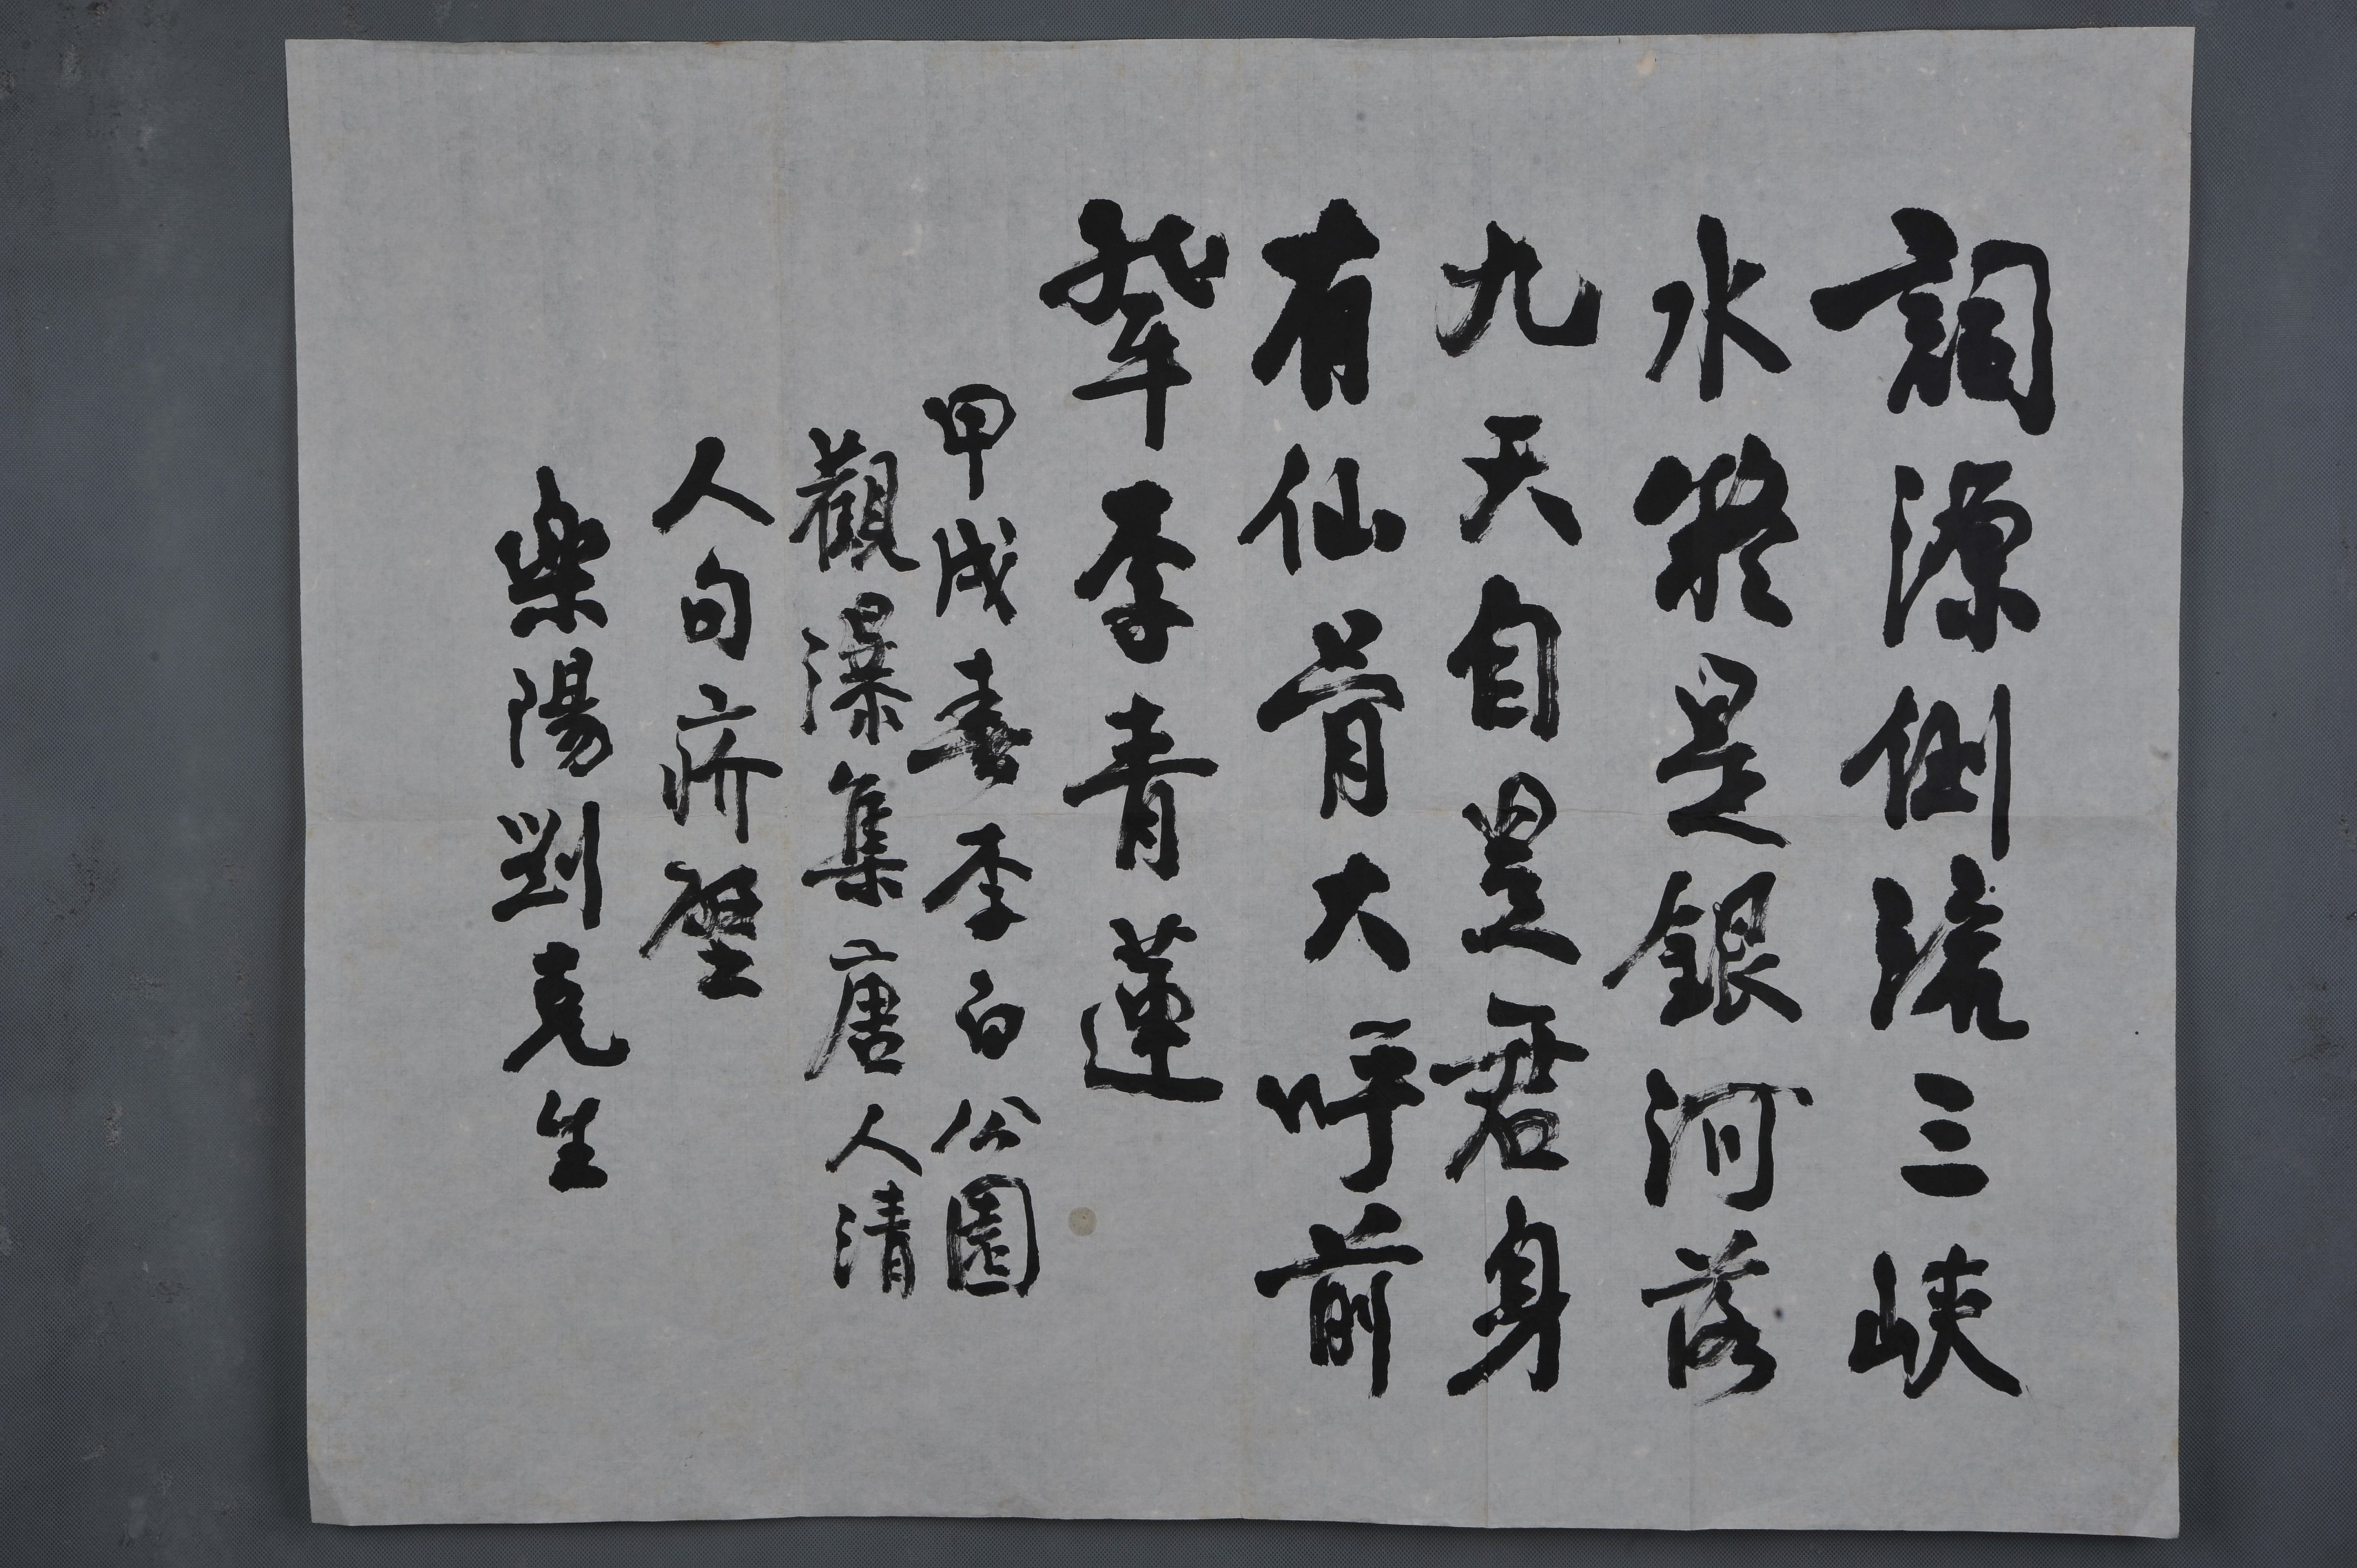 詞源倒流三峽
水疑是銀河落
九天自是君身
有仙骨大呼前
輩李青蓮
甲戌春李白公園
觀瀑集唐人清
人句疥壁
樂陽劉克生